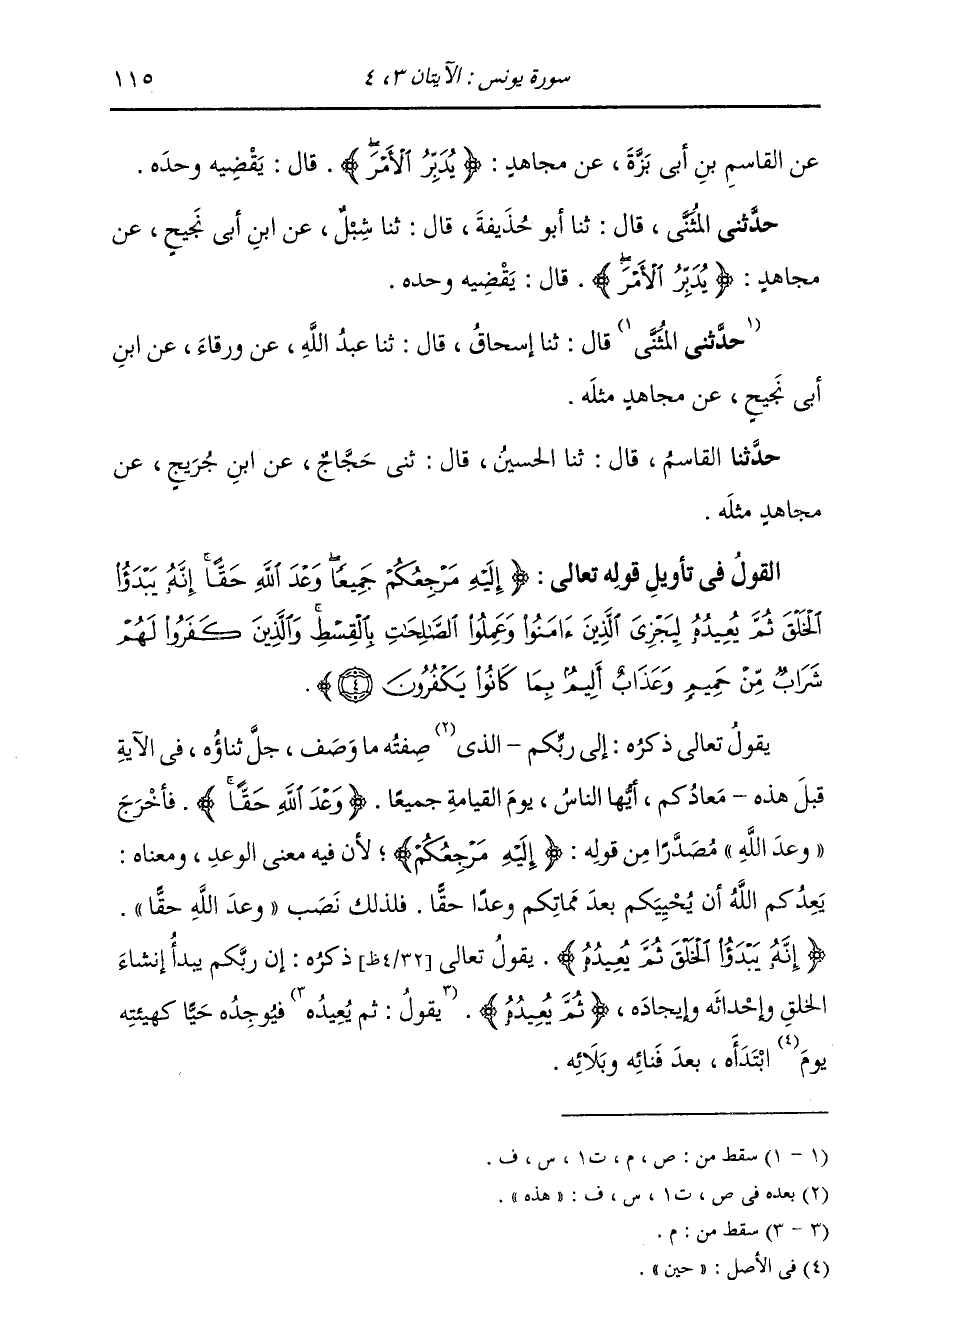 سورة يونس : الآيتان ٣ ، ٤
١١٥
عن القاسمِ بنِ أبى بَزَّةَ ، عن مجاهدٍ : ﴿ يُدَبِّرُ ٱلْأَمْرَۖ ﴾ . قال : يَقْضِيه وحدَه .
حدَّثنى المُثَنَّى ، قال : ثنا أبو حُذَيفةَ ، قال : ثنا شِبْلٌ ، عن ابنِ أبى نَجيحٍ ، عن
مجاهدٍ : ﴿ يُدَبِّرُ ٱلْأَمْرَۖ ﴾ . قال : يَقْضِيه وحده .
(١حدَّثنى المُثَنَّى١) قال : ثنا إسحاقُ ، قال : ثنا عبدُ اللَّهِ ، عن ورقاءَ ، عن ابنِ
أبى نَجيحٍ ، عن مجاهدٍ مثلَه .
حدَّثنا القاسمُ ، قال : ثنا الحسينُ ، قال : ثنى حَجَّاجٌ ، عن ابنِ جُرَيجٍ ، عن
مجاهدٍ مثلَه .
القولُ فى تأويلِ قولِه تعالى : ﴿ إِلَيْهِ مَرْجِعُكُمْ جَمِيعًاۖ وَعْدَ ٱللَّهِ حَقًّاۚ إِنَّهُۥ يَبْدَؤُا۟
ٱلْخَلْقَ ثُمَّ يُعِيدُهُۥ لِيَجْزِىَ ٱلَّذِينَ ءَامَنُوا۟ وَعَمِلُوا۟ ٱلصَّٰلِحَٰتِ بِٱلْقِسْطِۚ وَٱلَّذِينَ كَفَرُوا۟ لَهُمْ
شَرَابٌ مِّنْ حَمِيمٍ وَعَذَابٌ أَلِيمٌۢ بِمَا كَانُوا۟ يَكْفُرُونَ ٤ ﴾ .
يقولُ تعالى ذكرُه : إلى ربِّكم – الذى(٢) صِفتُه ما وَصَف ، جلَّ ثناؤُه ، فى الآيةِ
قبلَ هذه – مَعادُكم ، أيُّها الناسُ ، يومَ القيامةِ جميعًا . ﴿ وَعْدَ ٱللَّهِ حَقًّاۚ ﴾ . فأَخْرَجَ
« وعدَ اللَّهِ » مُصَدَّرًا مِن قولِه : ﴿ إِلَيْهِ مَرْجِعُكُمْ ﴾ ؛ لأن فيه معنى الوعدِ ، ومعناه :
يَعِدُكم اللَّهُ أن يُحْيِيَكم بعدَ مماتِكم وعدًا حقًّا . فلذلك نَصَب « وعدَ اللَّهِ حقًّا » .
﴿ إِنَّهُۥ يَبْدَؤُا۟ ٱلْخَلْقَ ثُمَّ يُعِيدُهُۥ ﴾ . يقولُ تعالى [٤/٣٢ظ] ذكرُه : إن ربَّكم يبدأُ إنشاءَ
الخلقِ وإحْداثَه وإيجادَه ، ﴿ ثُمَّ يُعِيدُهُۥ ﴾ . (٣يقولُ : ثم يُعِيدُه٣) فيُوجِدُه حَيًّا كهيئتِه
يومَ(٤) ابْتَدَأَه ، بعدَ فَنائِه وبَلَائِه .
(١ – ١) سقط من : ص ، م ، ت١ ، س ، ف .
(٢) بعده فى ص ، ت١ ، س ، ف : « هذه » .
(٣ – ٣) سقط من : م .
(٤) فى الأصل : « حين » .